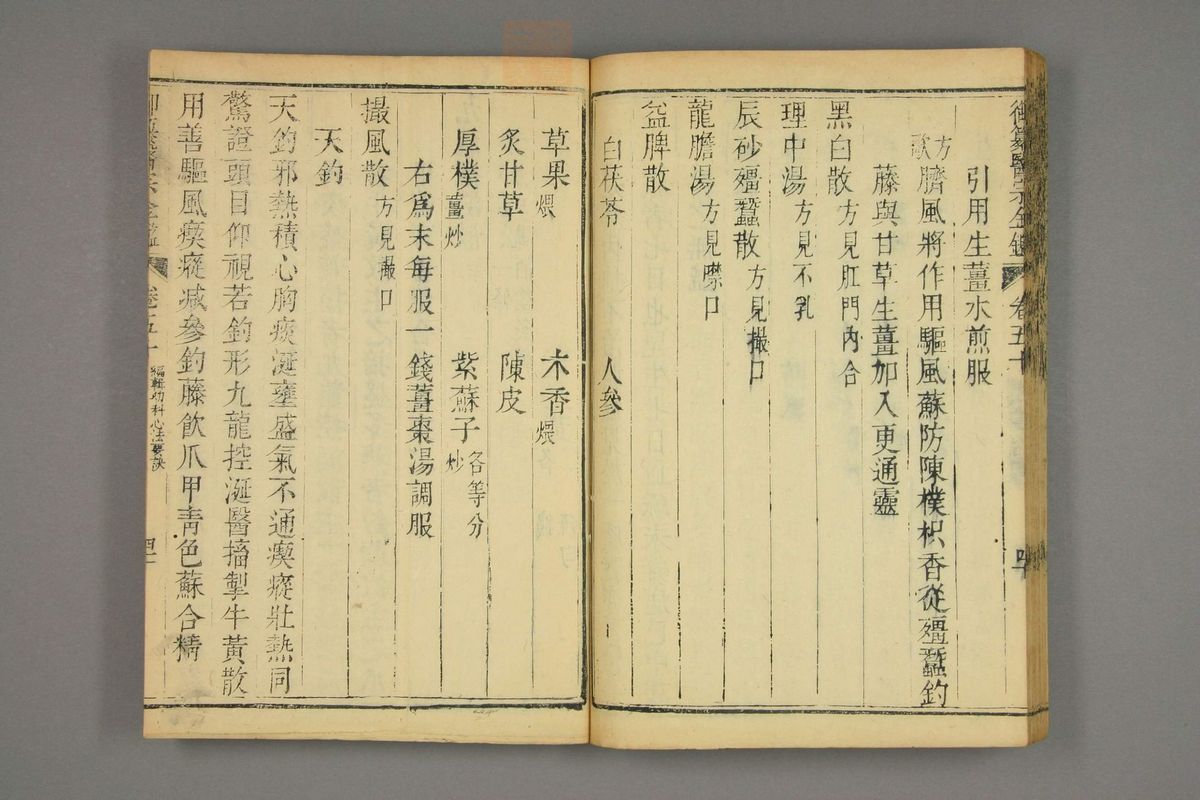 御纂醫宗金鑑 卷五十 四十
引用生薑水煎服
方歌 臍風將作用驅風蘇防陳樸枳香從殭蠶釣
藤與甘草生薑加入更通靈
黑白散 方見肛門內合
理中湯 方見不乳
辰砂殭蠶散 方見撮口
龍膽湯 方見噤口
益脾散
白茯苓 人參
草果煨 木香煨
炙甘草 陳皮
厚樸薑炒 紫蘇子炒 各等分
右爲末每服一錢薑棗湯調服
撮風散 方見撮口
天釣
天釣邪熱積心胸痰涎壅盛氣不通瘈瘲壯熱同
驚證頭目仰視若釣形九龍控涎醫搐掣牛黃散
用善驅風瘈瘲減參釣藤飲爪甲青色蘇合精
御纂醫宗金鑑 卷五十 編輯幼科心法要訣 四一